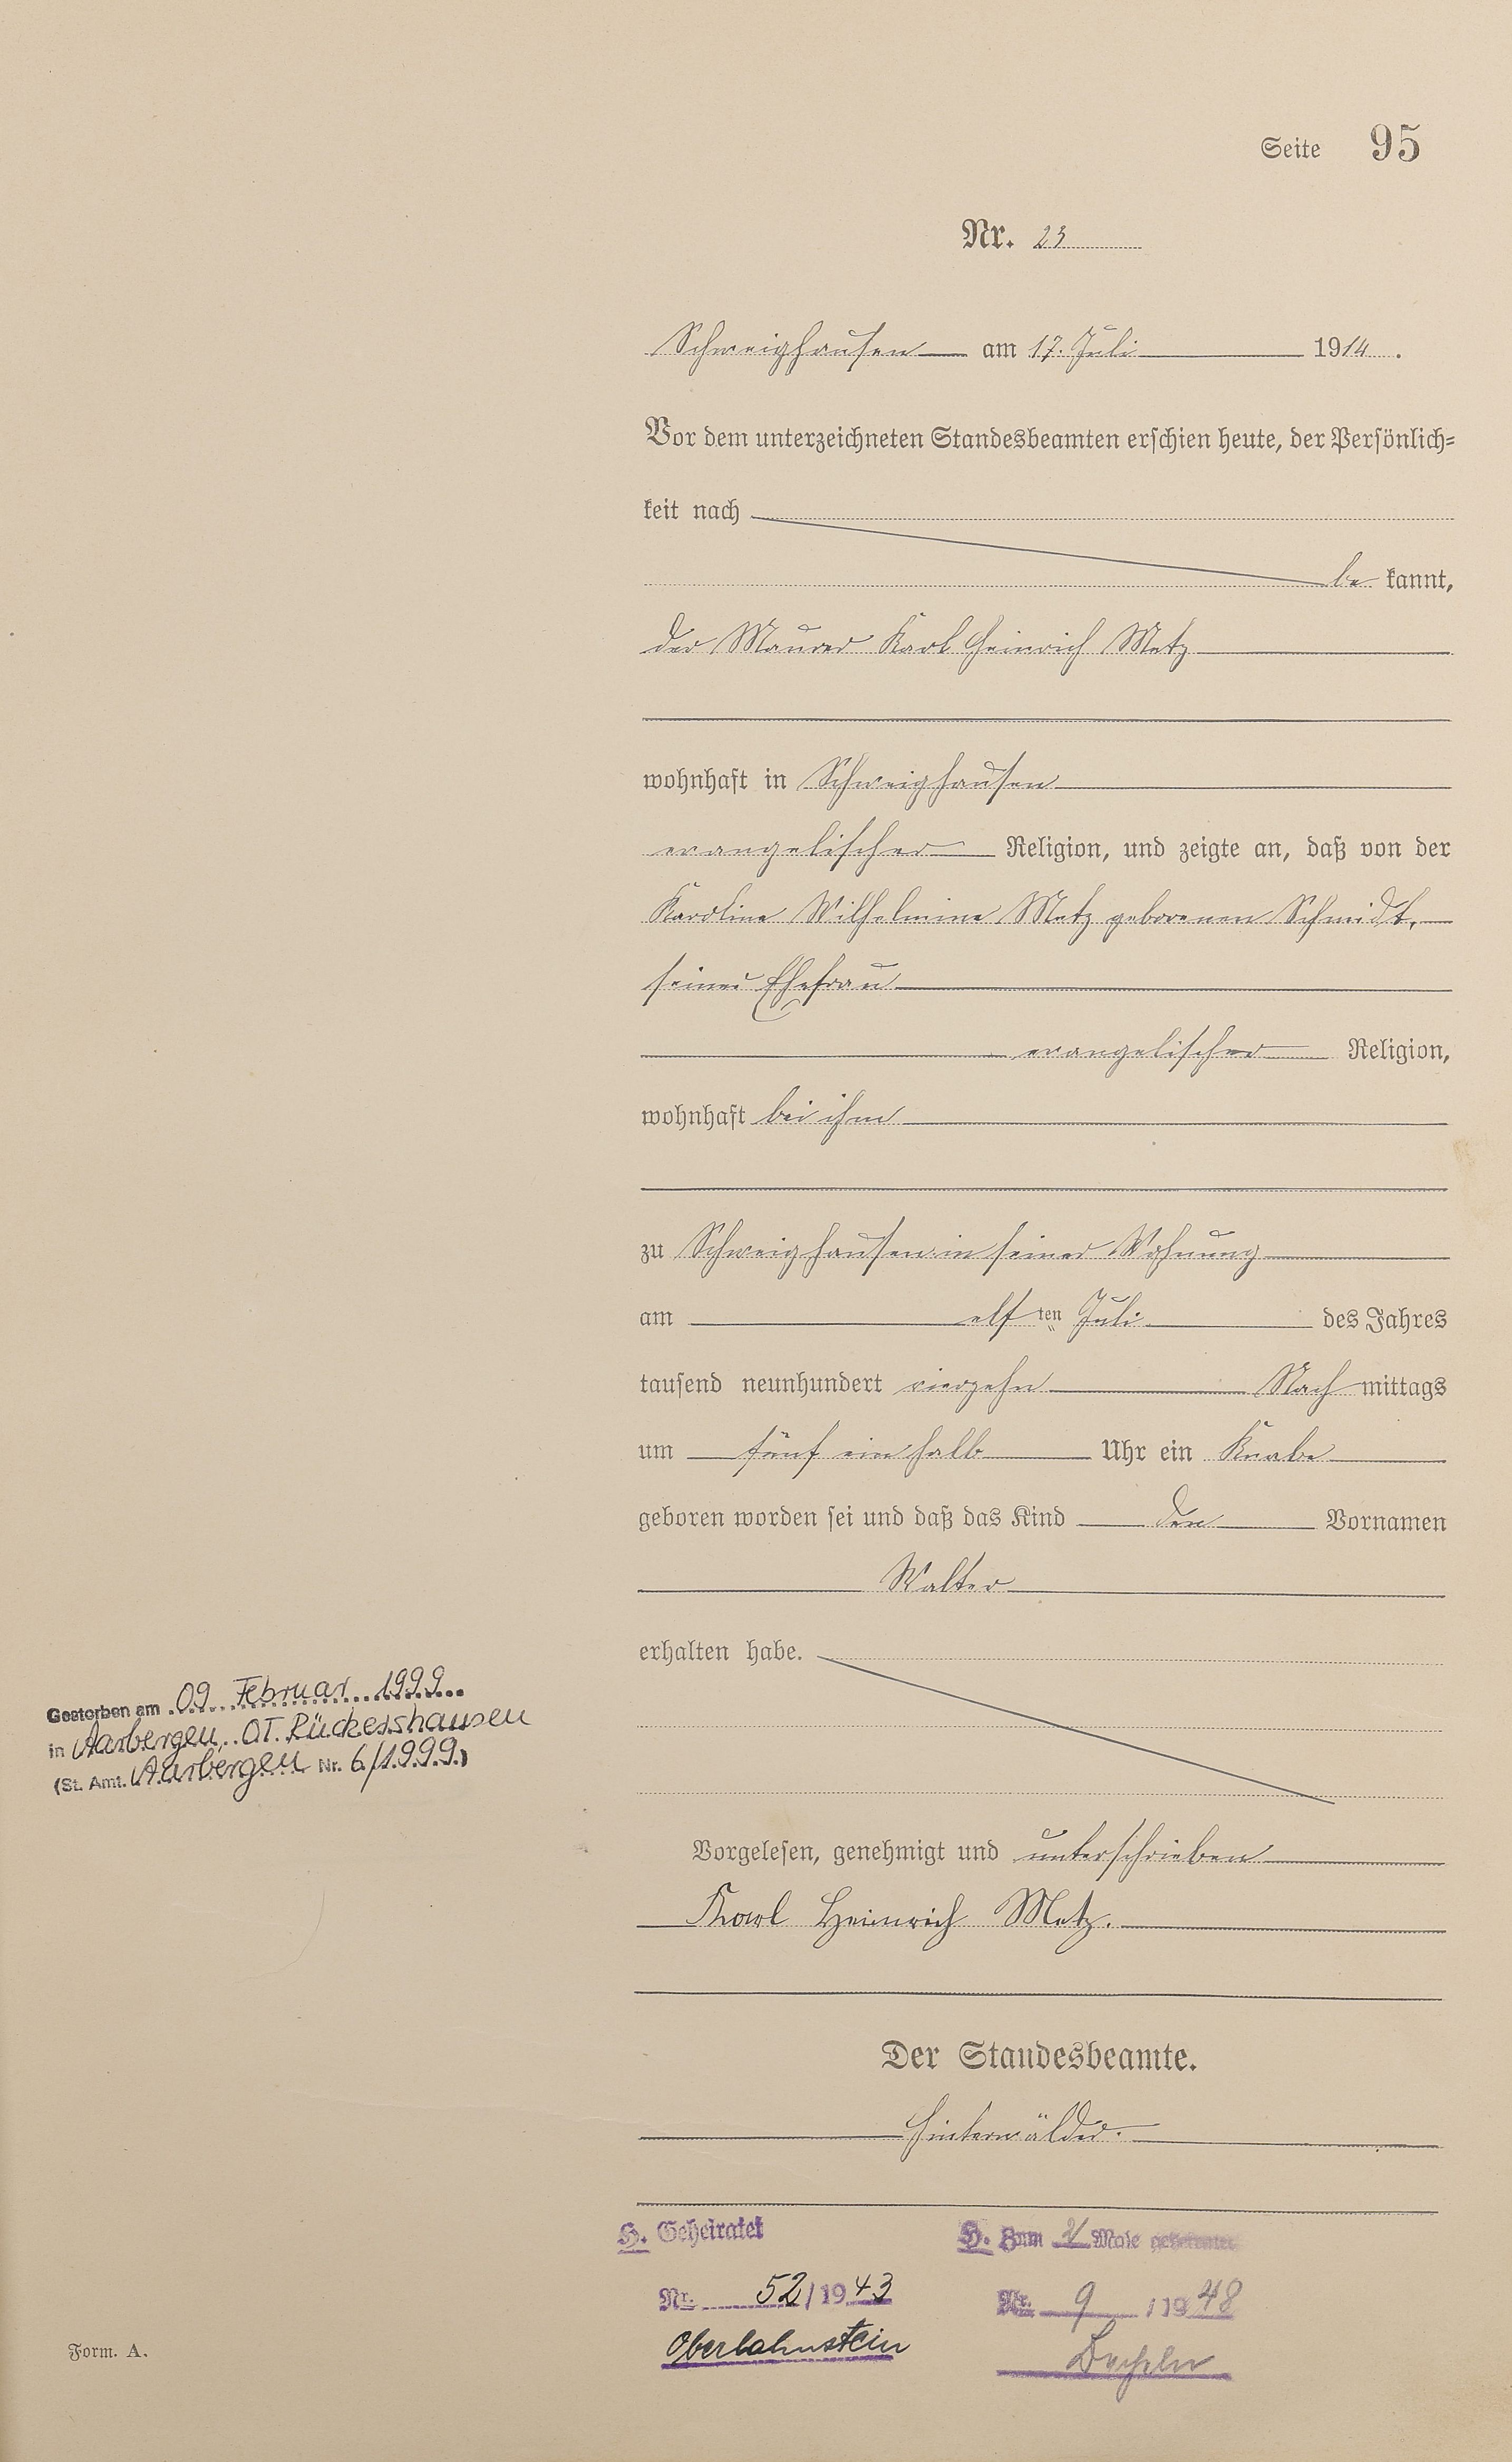 Seite 95
Nr. 23
Schweighausen am 17. Juli 1914.
Vor dem unterzeichneten Standesbeamten erschien heute, der Persönlich=
keit nach
be kannt,
der Maurer Karl Heinrich Metz
wohnhaft in Schweighausen
evangelischer Religion, und zeigte an, daß von der
Karoline Wilhelmine Metz geborenen Schmidt,
seiner Ehefrau
evangelischer Religion,
wohnhaft bei ihm
zu Schweighausen in seiner Wohnung
am elf ten Juli des Jahres
tausend neunhundert vierzehn Nach mittags
um fünf ein halb Uhr ein Knabe
geboren worden sei und daß das Kind den Vornamen
Walter
erhalten habe.
Gestorben am 09. Februar 1999
in Aarbergen, OT. Rückershausen
(St. Amt. Aarbergen Nr. 6/1999)
Vorgelesen, genehmigt und unterschrieben
Karl Heinrich Metz.
Der Standesbeamte.
Hinterwälder.
H. Geheiratet
Nr. 52/1943
Oberlahnstein
H. Zum 2 Male geheiratet
Nr. 9 /1948
Form. A.